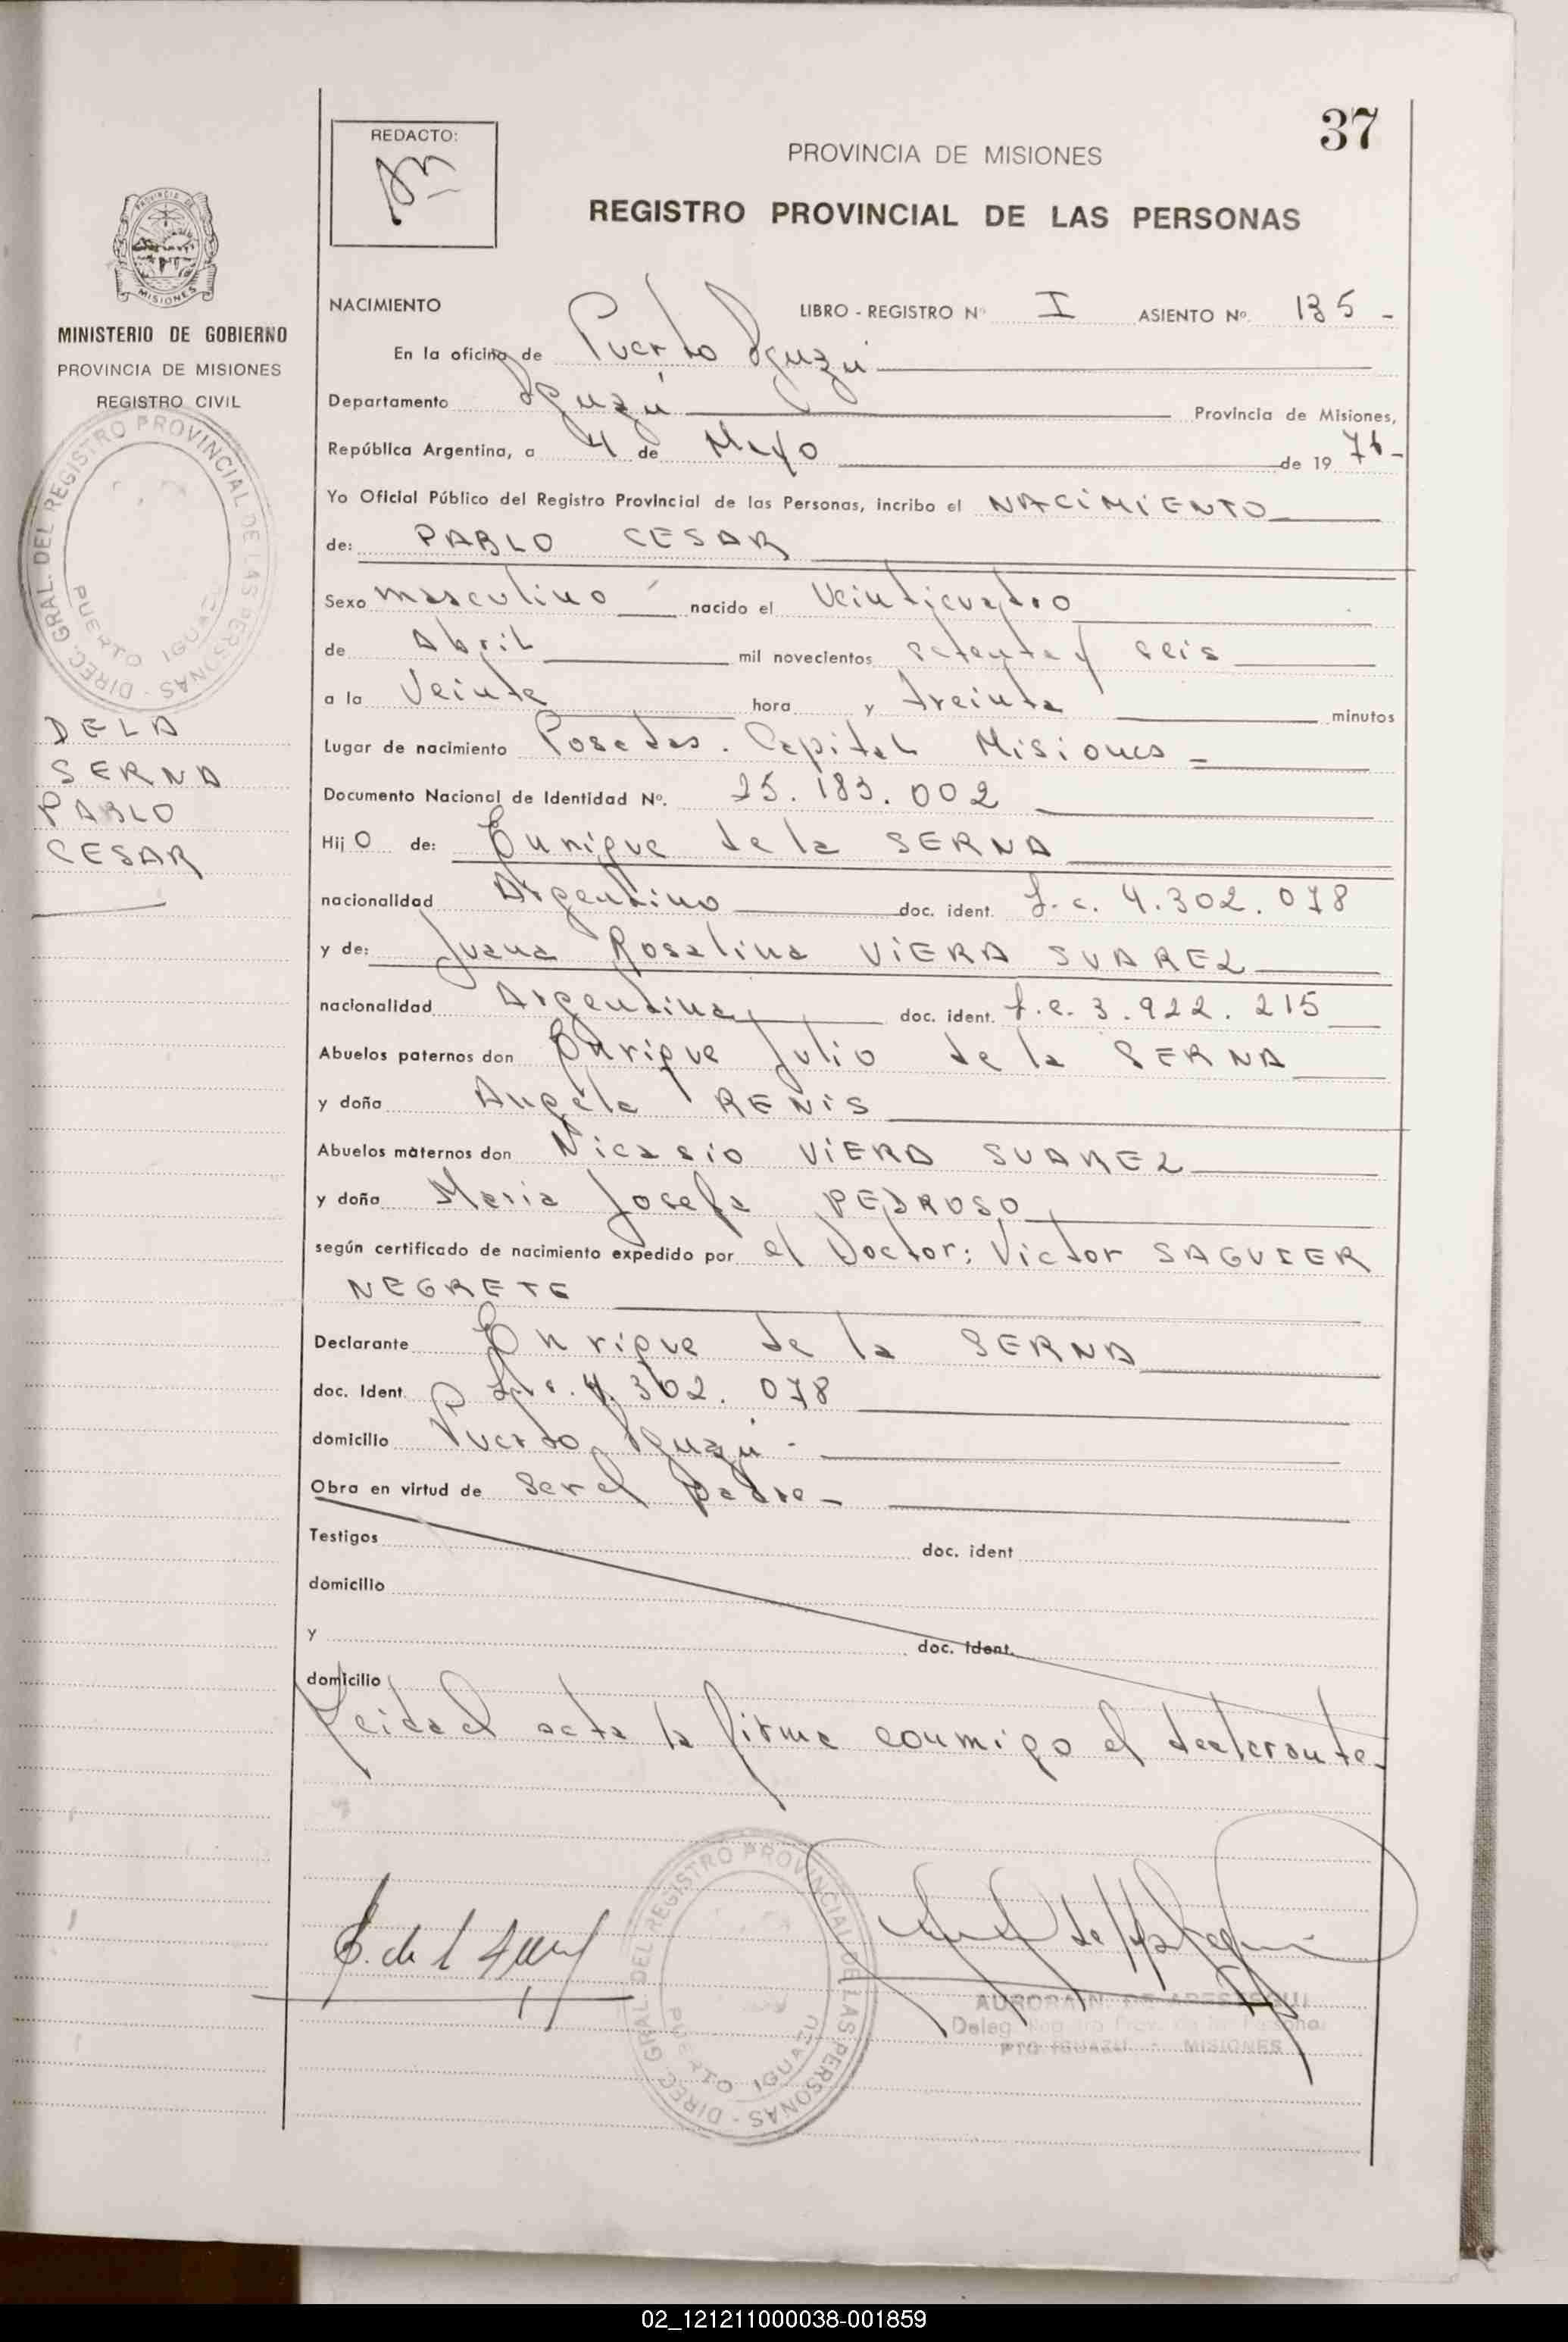 37
REDACTO:
PROVINCIA DE MISIONES
REGISTRO PROVINCIAL DE LAS PERSONAS
PROVINCIA DE
MISIONES
MINISTERIO DE GOBIERNO
PROVINCIA DE MISIONES
REGISTRO CIVIL
DIREC. GRAL. DEL REGISTRO PROVINCIAL DE LAS PERSONAS -
PUERTO IGUAZU
DE LA
SERNA
PABLO
CESAR
NACIMIENTO LIBRO - REGISTRO Nº I ASIENTO Nº 135 -
En la oficina de Puerto Iguazú
Departamento Iguazú Provincia de Misiones,
República Argentina, a 4 de Mayo de 19 76-
Yo Oficial Público del Registro Provincial de las Personas, incribo el NACIMIENTO
de: PABLO CESAR
Sexo masculino nacido el Veinticuatro
de Abril mil novecientos setenta y seis
a la Veinte hora y treinta minutos
Lugar de nacimiento Posadas. Capital Misiones =
Documento Nacional de Identidad Nº. 25.183.002
Hij O de: Enrique de la SERNA
nacionalidad Argentino doc. ident. 4.302.078
y de: Juana Rosalina VIERA SUAREZ
nacionalidad Argentina doc. ident. 3.922.215
Abuelos paternos don Enrique Julio de la SERNA
y doña Angela RENIS
Abuelos maternos don Nicasio VIERA SUAREZ
y doña Maria Josefa PEDROSO
según certificado de nacimiento expedido por el Doctor: Victor SAGUIER
NEGRETE
Declarante Enrique de la SERNA
doc. Ident. 4.302.078
domicilio Puerto Iguazú -
Obra en virtud de ser el padre -
Testigos doc. ident
domicilio
y doc. Ident.
domicilio
Leida el acta la firma conmigo el declarante-
E. de l Serna
DIREC. GRAL. DEL REGISTRO PROVINCIAL DE LAS PERSONAS -
PUERTO IGUAZU
Deleg. Registro Prov. de las
PTO IGUAZU - MISIONES
02_121211000038-001859